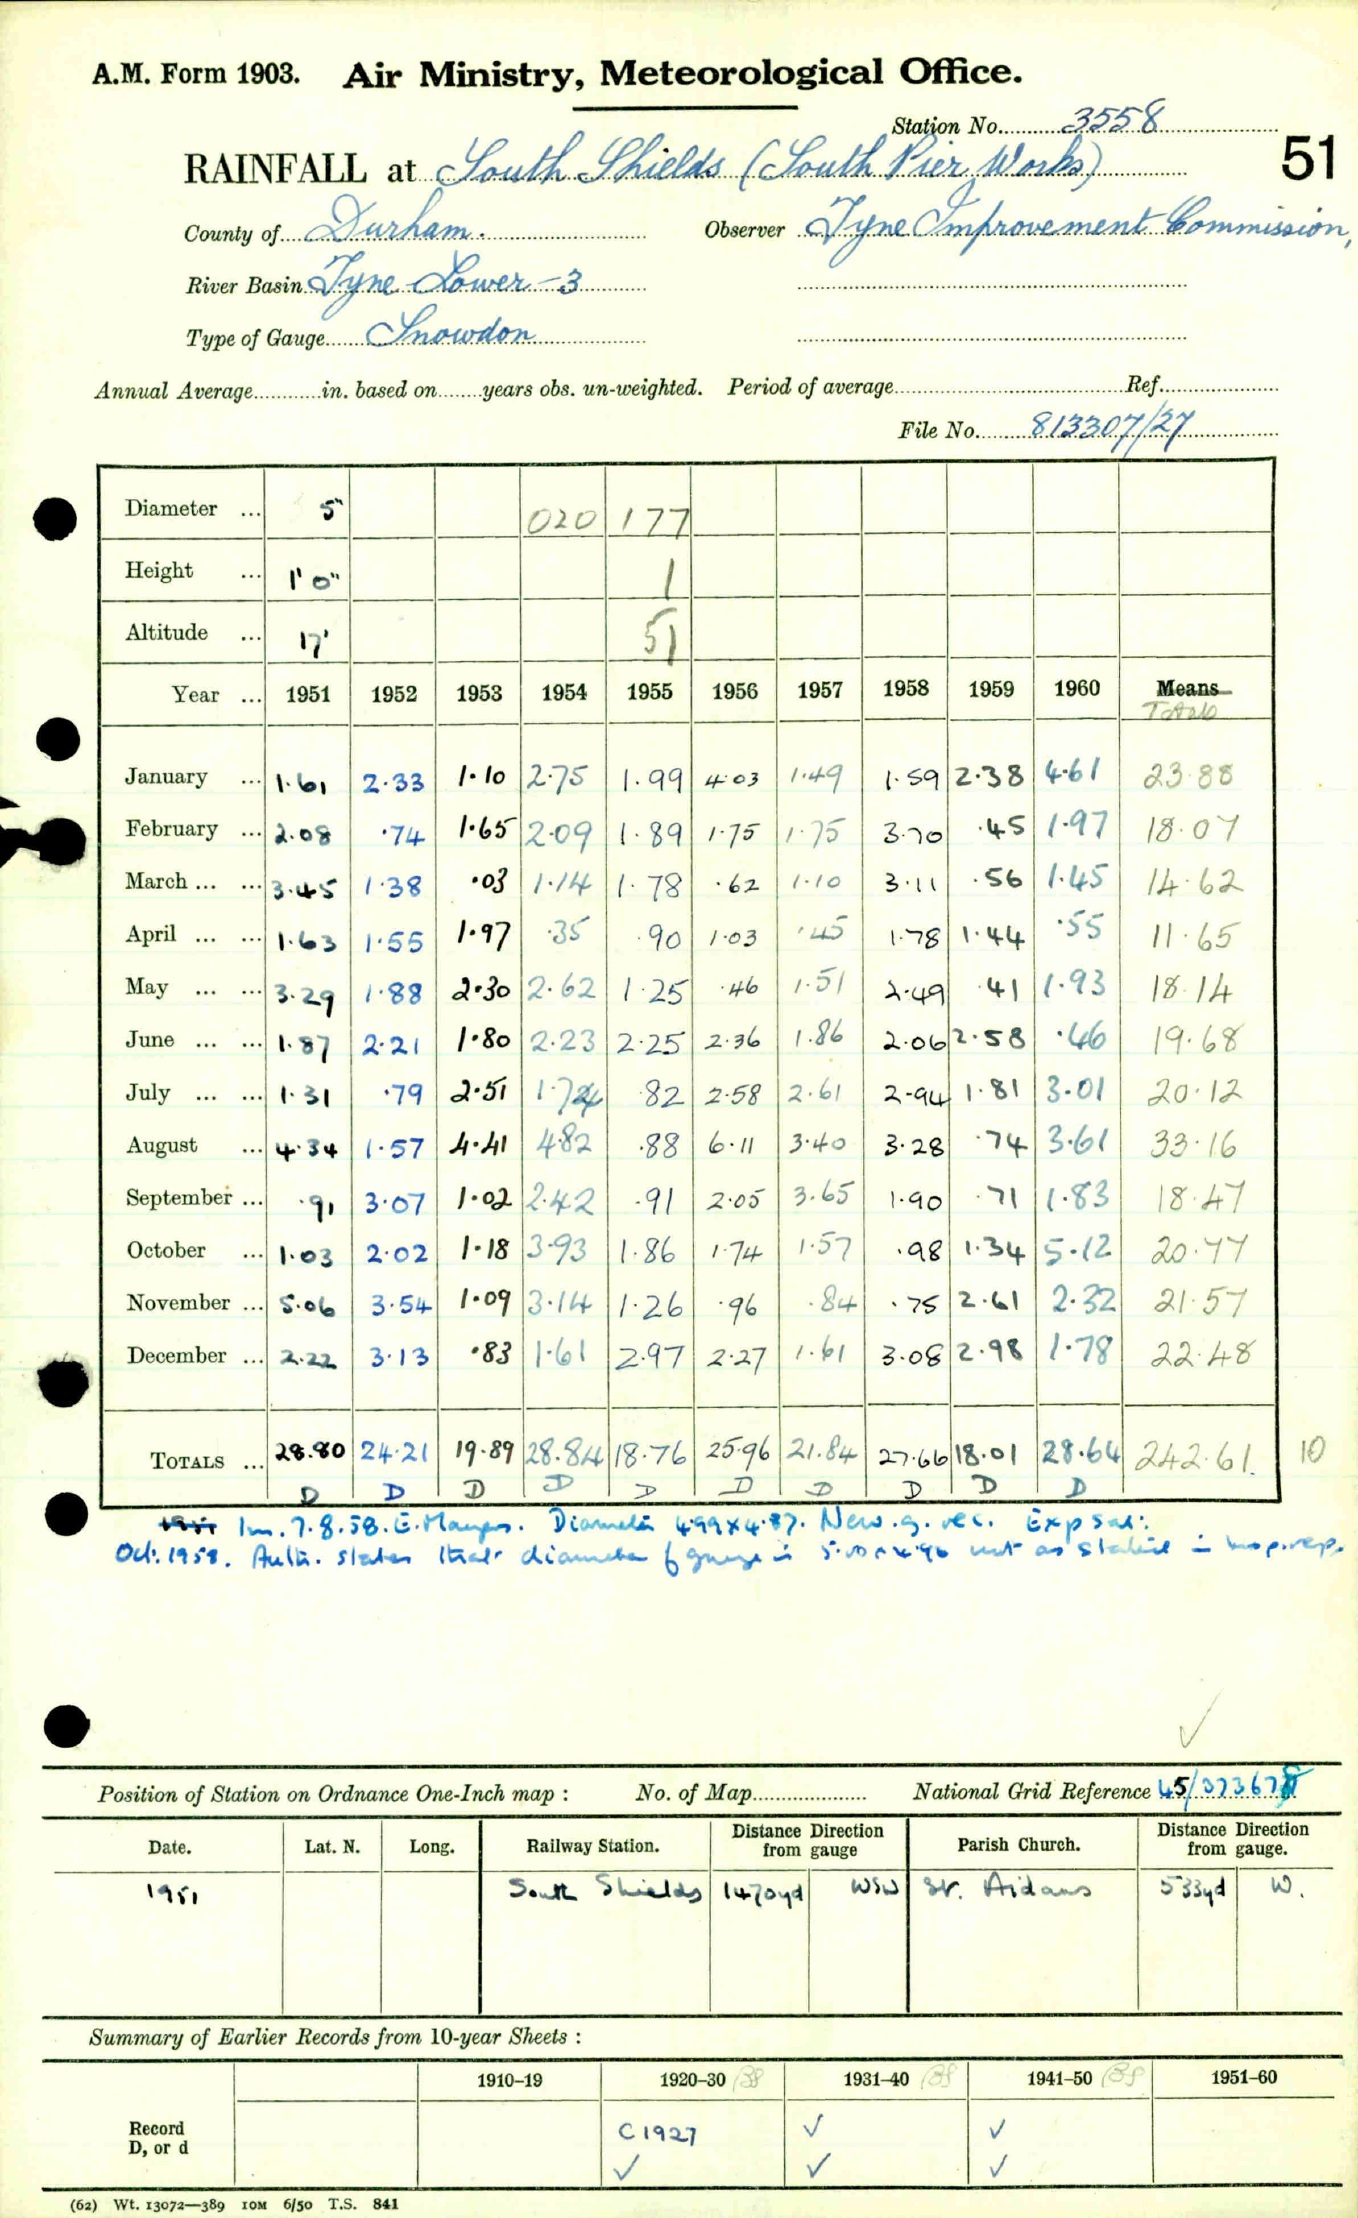 A.M. Form 1903. Air Ministry, Meteorological Office.
Station No. 3558
RAINFALL at South Shields (South Pier Works) 51
County of Durham. Observer Tyne Improvement Commission,
River Basin Tyne Lower - 3
Type of Gauge Snowdon
Annual Average in. based on years obs. un-weighted. Period of average Ref.
File No. 813307/27
Diameter ... 5" 020 177
Height ... 1' 0" 1
Altitude ... 17' 51
Year ... 1951 1952 1953 1954 1955 1956 1957 1958 1959 1960 Means
Totals
January ... 1.61 2.33 1.10 2.75 1.99 4.03 1.49 1.59 2.38 4.61 23.88
February ... 2.08 .74 1.65 2.09 1.89 1.75 1.75 3.70 .45 1.97 18.07
March ... ... 3.45 1.38 .03 1.14 1.78 .62 1.10 3.11 .56 1.45 14.62
April ... ... 1.63 1.55 1.97 .35 .90 1.03 .45 1.78 1.44 .55 11.65
May ... ... 3.29 1.88 2.30 2.62 1.25 .46 1.51 2.49 .41 1.93 18.14
June ... ... 1.87 2.21 1.80 2.23 2.25 2.36 1.86 2.06 2.58 .46 19.68
July ... ... 1.31 .79 2.51 1.74 .82 2.58 2.61 2.94 1.81 3.01 20.12
August ... 4.34 1.57 4.41 4.82 .88 6.11 3.40 3.28 .74 3.61 33.16
September ... .91 3.07 1.02 2.42 .91 2.05 3.65 1.90 .71 1.83 18.47
October ... 1.03 2.02 1.18 3.93 1.86 1.74 1.57 .98 1.34 5.12 20.77
November ... 5.06 3.54 1.09 3.14 1.26 .96 .84 .75 2.61 2.32 21.57
December ... 2.22 3.13 .83 1.61 2.97 2.27 1.61 3.08 2.98 1.78 22.48
TOTALS ... 28.80 24.21 19.89 28.84 18.76 25.96 21.84 27.66 18.01 28.64 242.61 10
D D D D D D D D D D
1951 In. 7.8.58. E. Diameter 4.99 x 4.87. New g. rec. Exp sat:
Oct. 1958. Auth. states that diameter of gauge is 5.00 x 4.96 not as stated in insp. rep.
Position of Station on Ordnance One-Inch map : No. of Map National Grid Reference 45/37367
Date. Lat. N. Long. Railway Station. Distance from Direction gauge Parish Church. Distance from Direction gauge.
1951 South Shields 1470yd WSW St. Aidans 533yd W.
Summary of Earlier Records from 10-year Sheets :
1910–19 1920–30 1931–40 1941–50 1951–60
Record D, or d C 1927 ✓ ✓
✓ ✓ ✓
(62) Wt. 13072—389 10M 6/50 T.S. 841